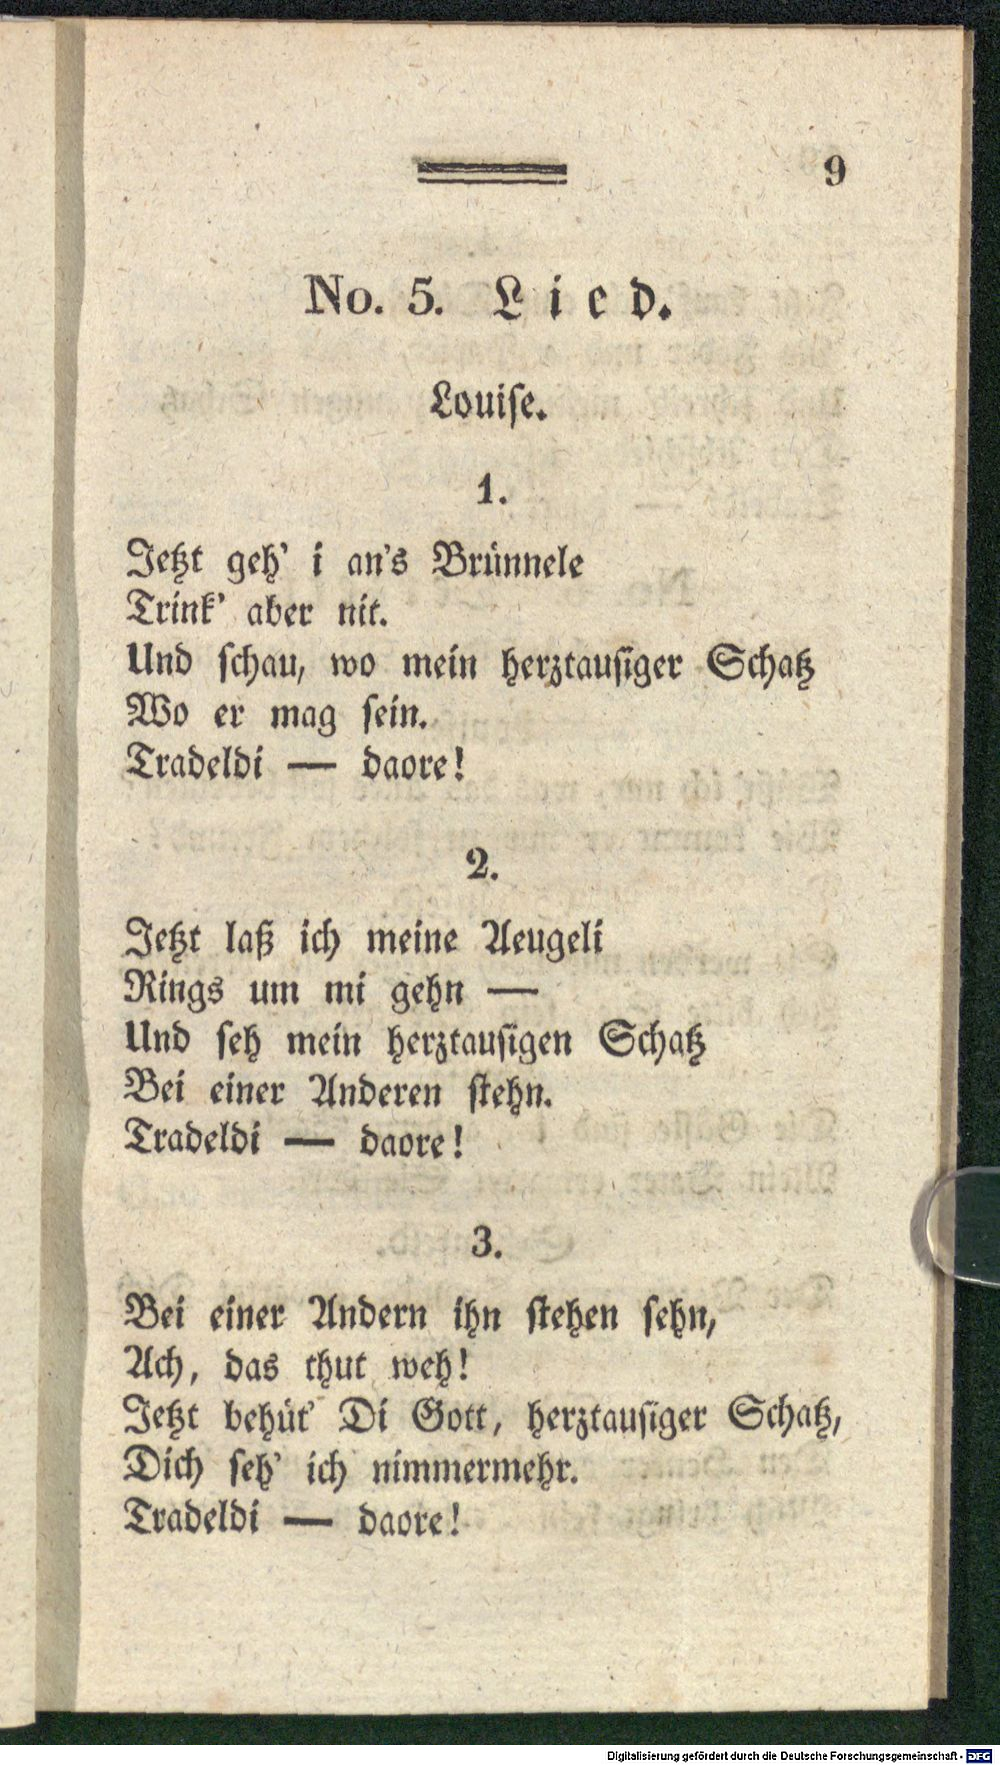 9
No. 5. Lied.
Louise.
1.
Jetzt geh' i an's Brünnele
Trink' aber nit.
Und schau, wo mein herztausiger Schatz
Wo er mag sein.
Tradeldi — daore!
2.
Jetzt laß ich meine Aeugeli
Rings um mi gehn —
Und seh mein herztausigen Schatz
Bei einer Anderen stehn.
Tradeldi — daore!
3.
Bei einer Andern ihn stehen sehn,
Ach, das thut weh!
Jetzt behüt' Di Gott, herztausiger Schatz,
Dich seh' ich nimmermehr.
Tradeldi — daore!
Digitalisierung gefördert durch die Deutsche Forschungsgemeinschaft - DFG